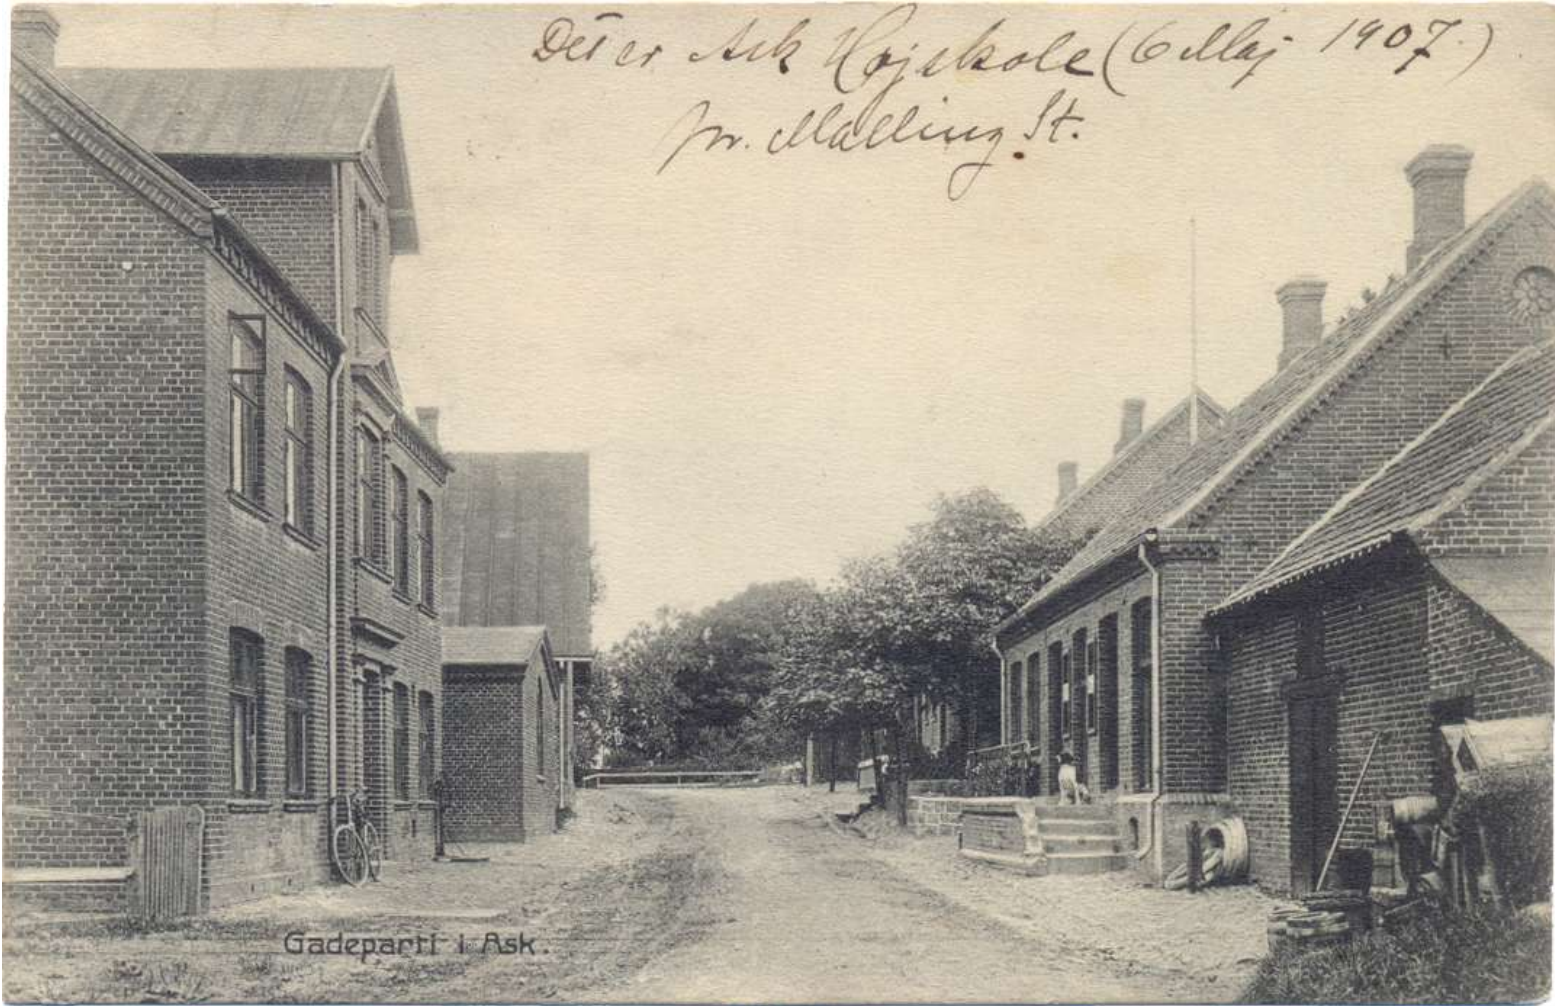 Det er Ask Højskole (6 Maj 1907.)
pr. Malling St.
Gadeparti i Ask.